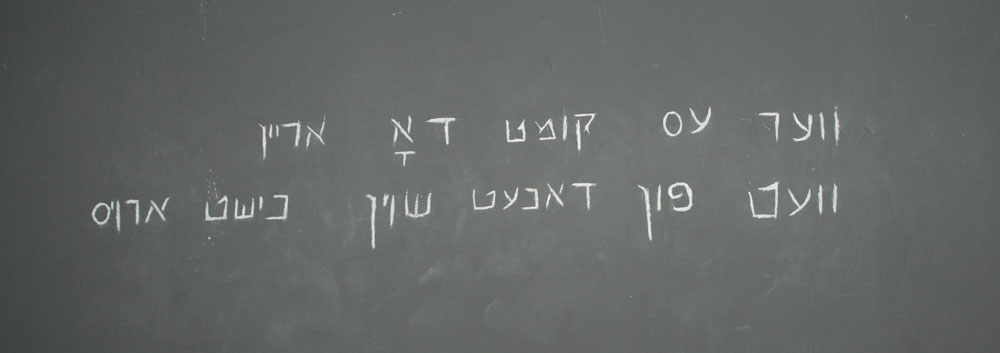 ווער עס קומט דאָ אריין
וועט פון דאנעט שוין נישט ארויס